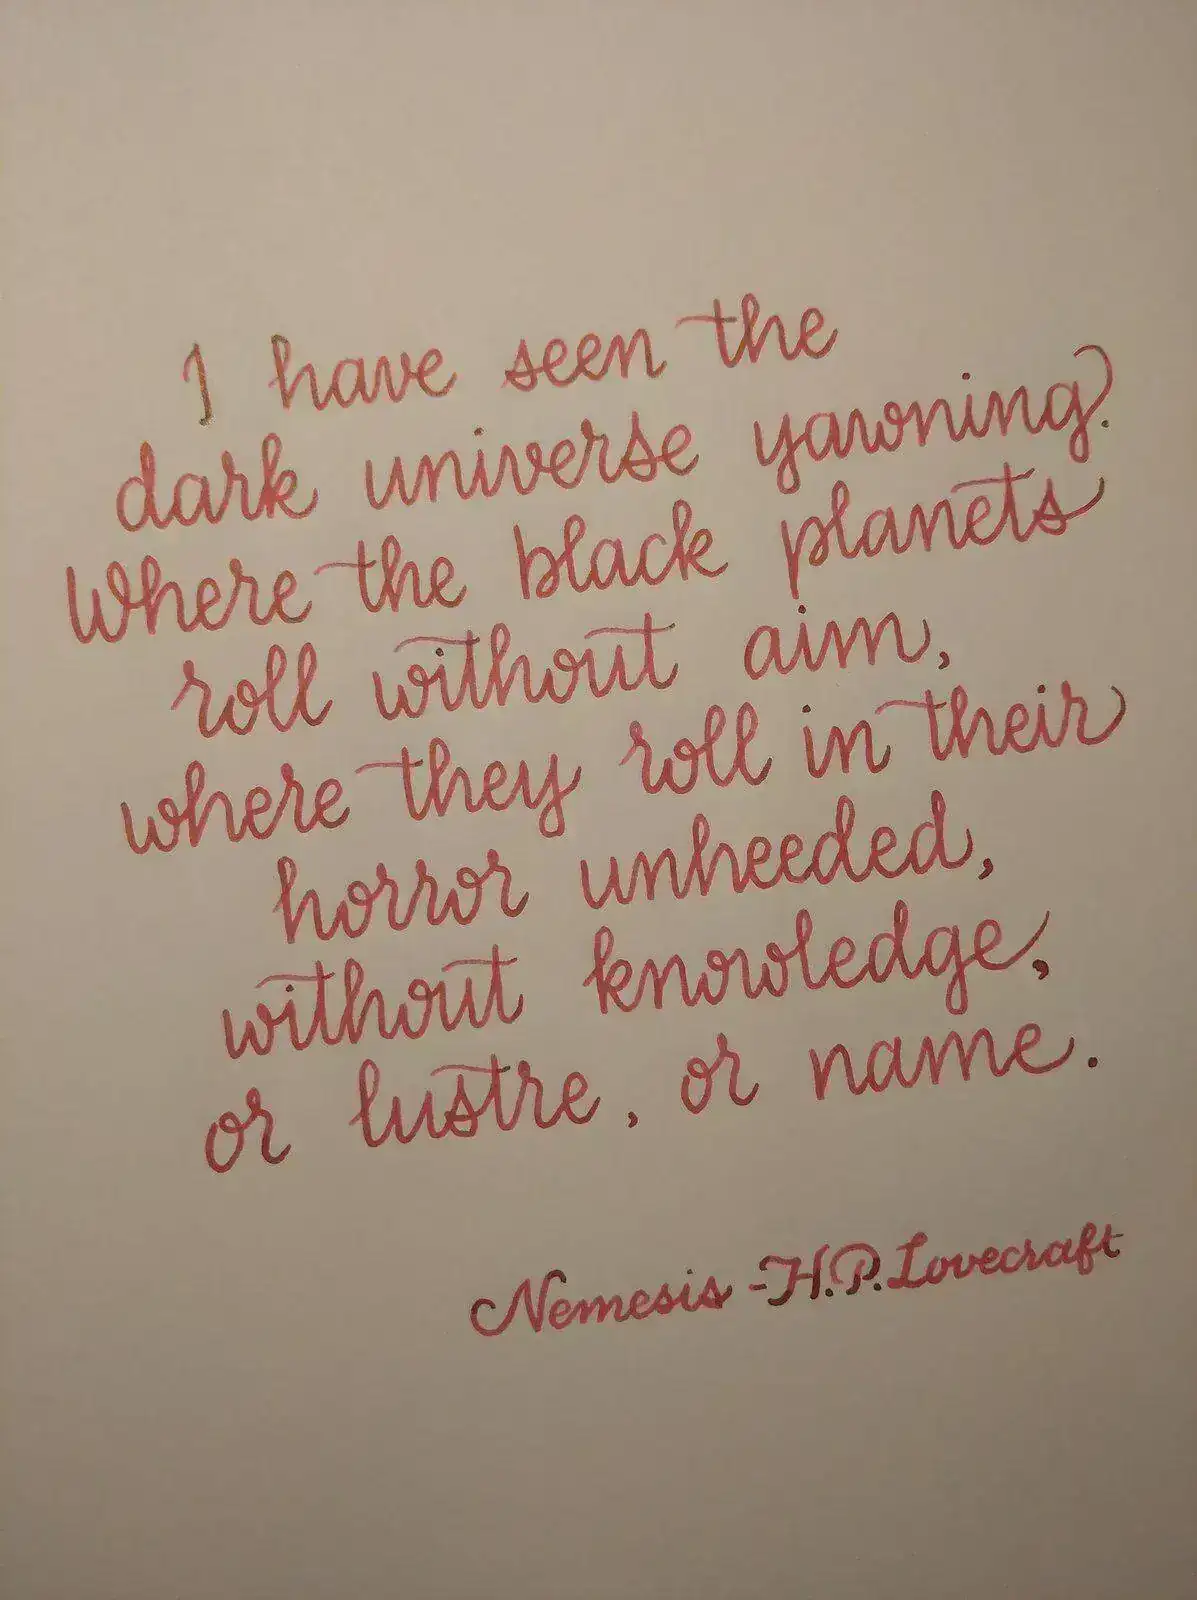 I have seen the
dark universe yawning.
Where the black planets
roll without aim,
where they roll in their
horror unheeded,
without knowledge,
or lustre, or name.
Nemesis - H.P. Lovecraft